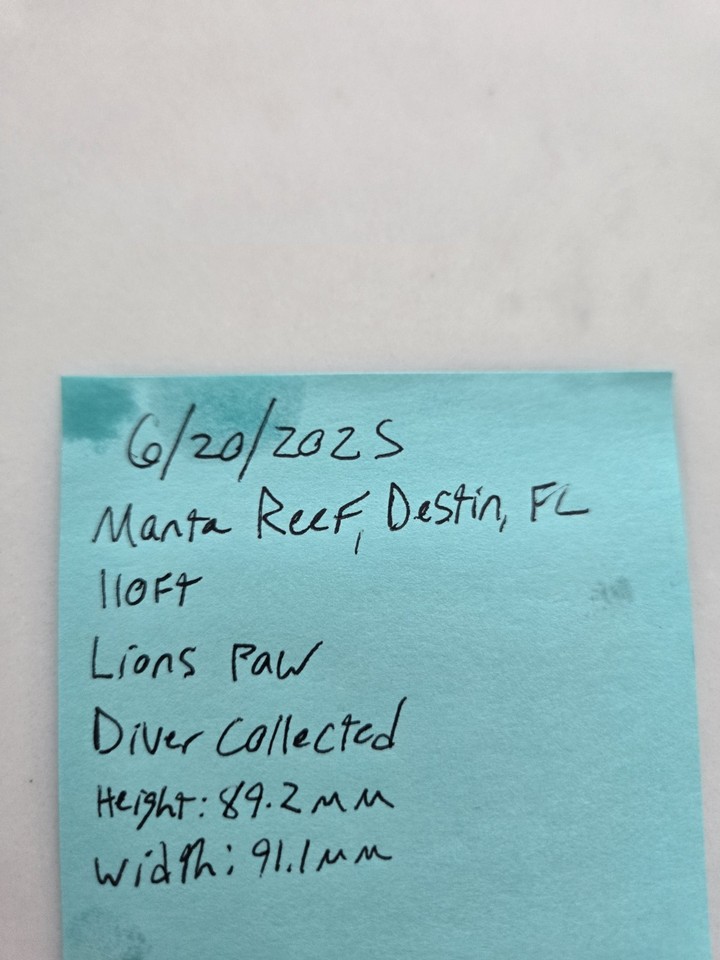 6/20/2025
Manta Reef, Destin, FL
110Ft
Lions Paw
Diver Collected
Height: 89.2mm
Width: 91.1mm